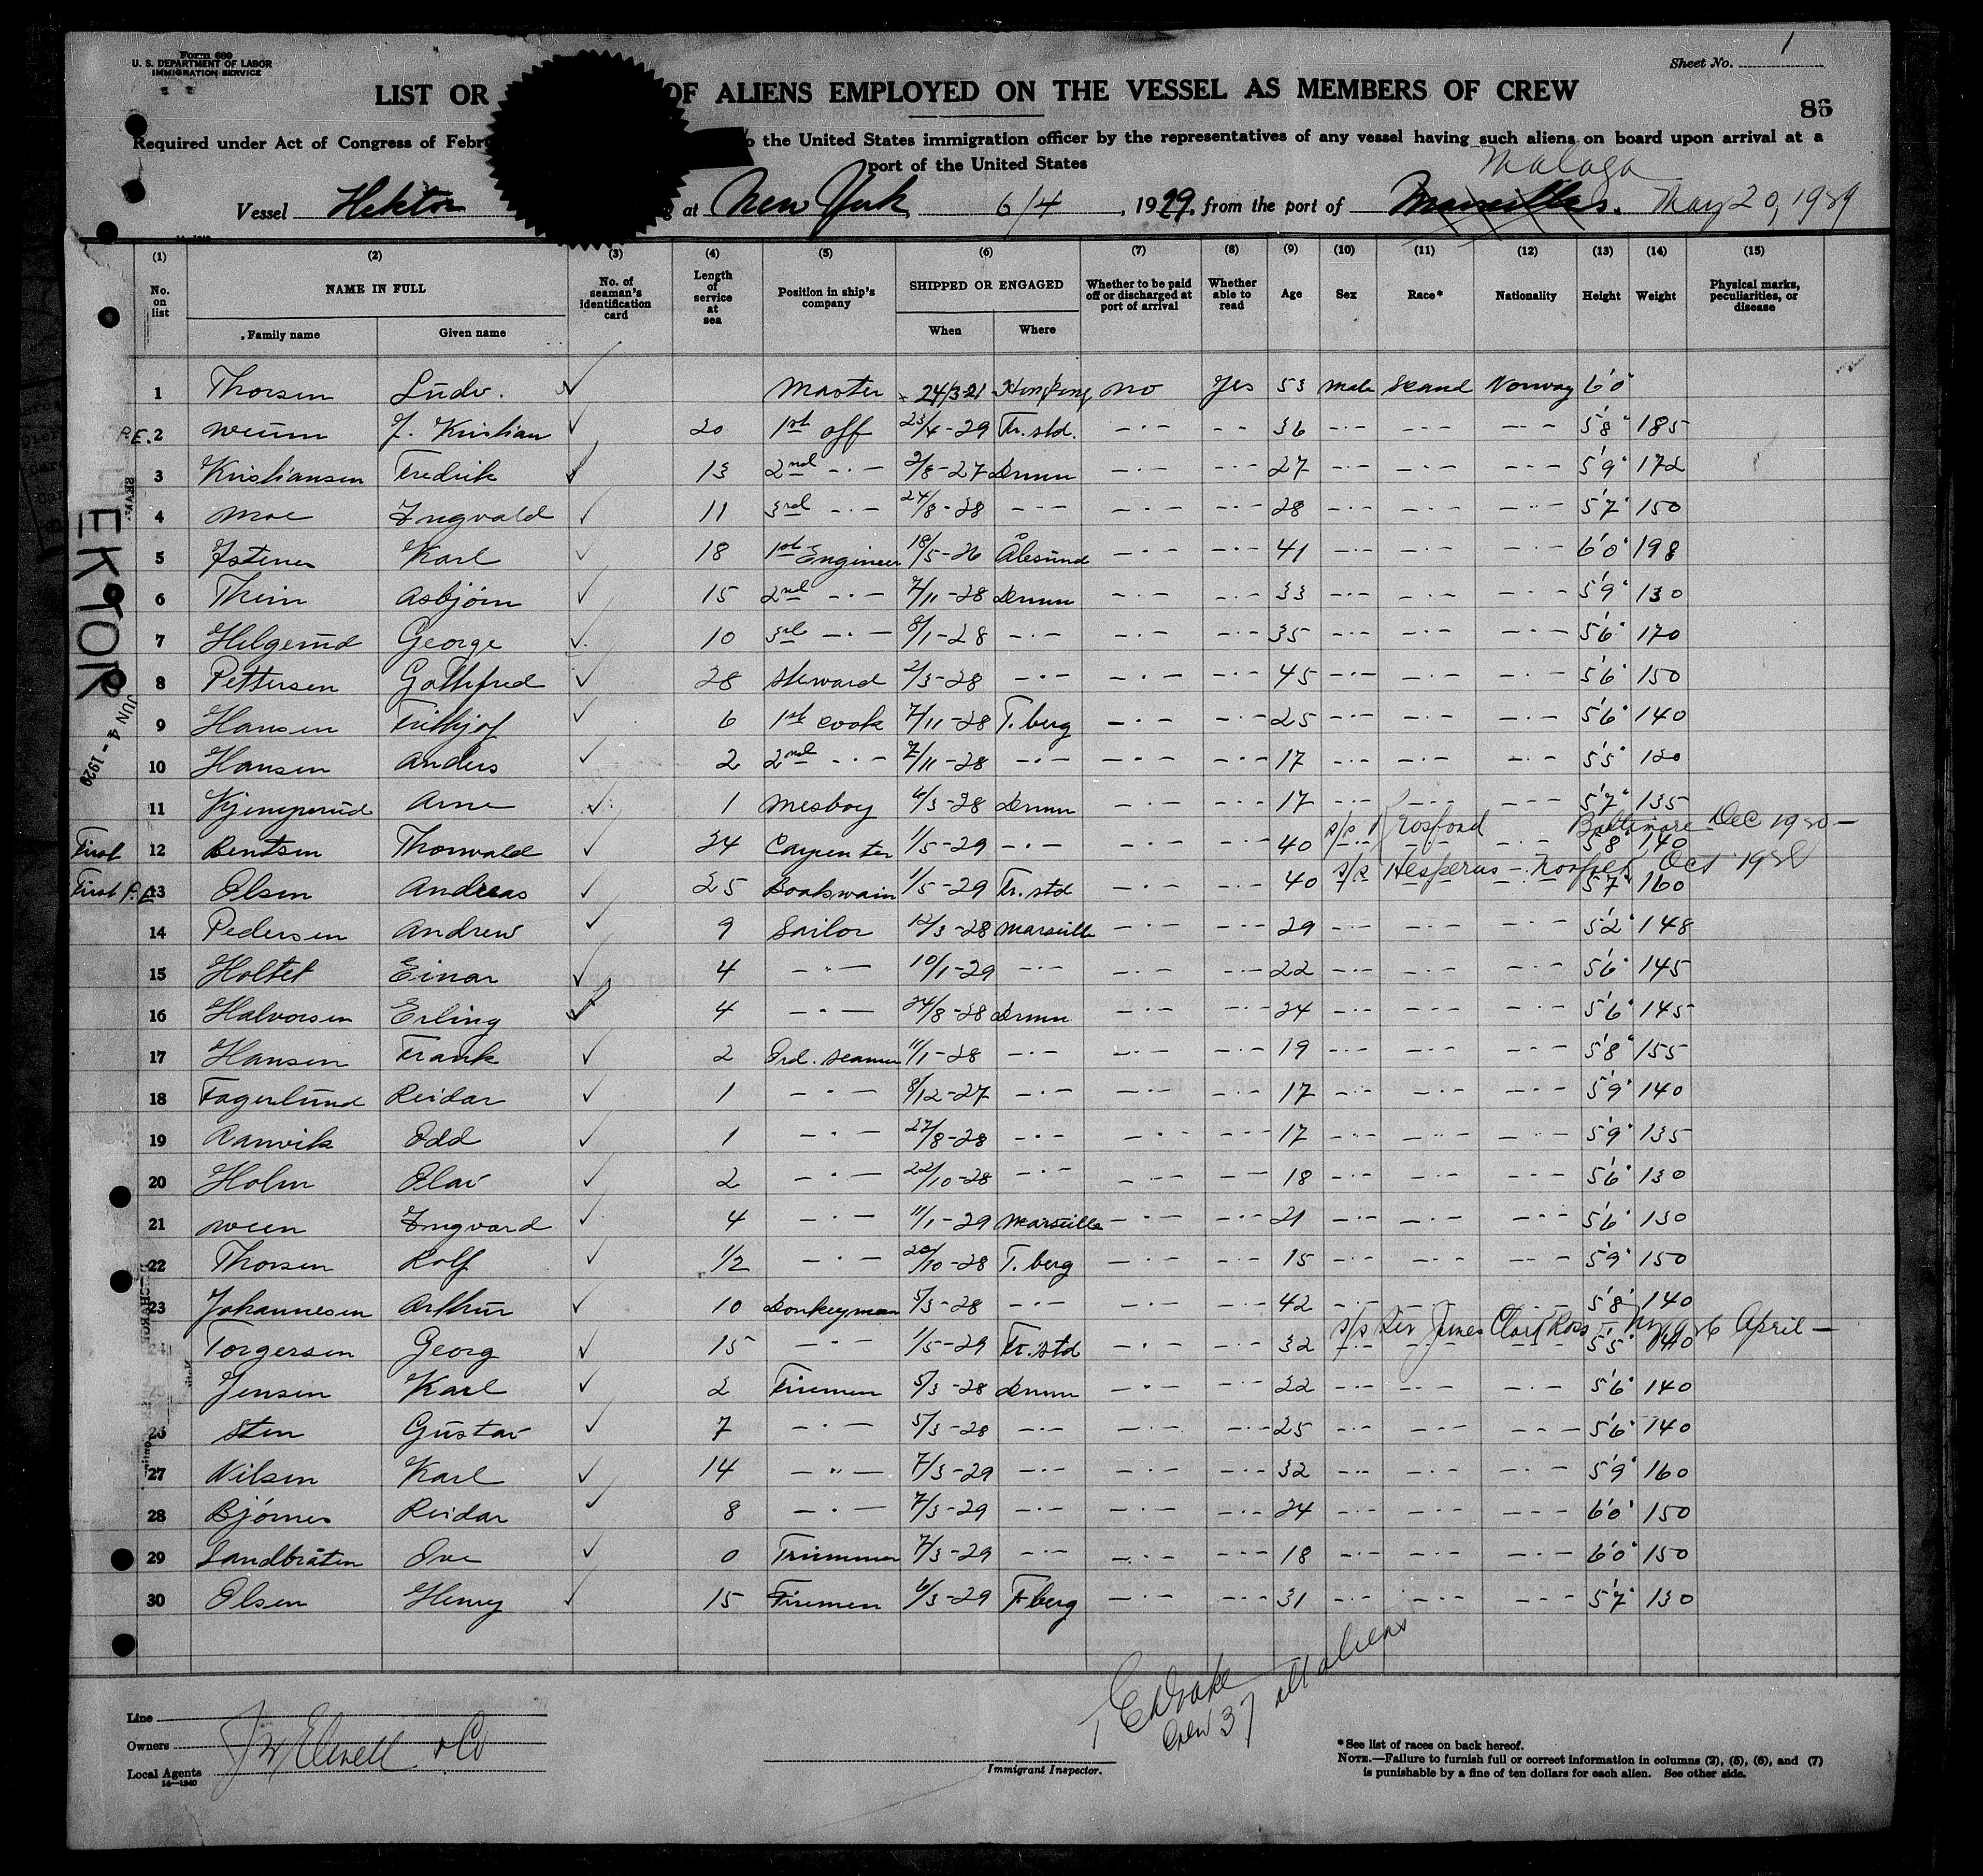 Form 680
U. S. DEPARTMENT OF LABOR
IMMIGRATION SERVICE
Sheet No. 1
LIST OR OF ALIENS EMPLOYED ON THE VESSEL AS MEMBERS OF CREW
86
Required under Act of Congress of Febru to the United States immigration officer by the representatives of any vessel having such aliens on board upon arrival at a
port of the United States
Malaga
Vessel Hektor at New York 6/4, 1929, from the port of Marseilles. May 20, 1929
(1) (2) (3) (4) (5) (6) (7) (8) (9) (10) (11) (12) (13) (14) (15)
No. on list NAME IN FULL No. of seaman's identification card Length of service at sea Position in ship's company SHIPPED OR ENGAGED Whether to be paid off or discharged at port of arrival Whether able to read Age Sex Race* Nationality Height Weight Physical marks, peculiarities, or disease
Family name Given name When Where
1 Thorsen Ludv. Master 24/3-21 Hongkong no Yes 53 male Skand Norway 6'0"
P.E. 2 J. Kristian 20 1st off 23/4-29 Fr.std. -·- -- 36 -·- -·- -·- 5'8" 185
3 Kristiansen Fredrik 13 2nd -·- 2/8-27 Drmm -·- -·- 27 -·- -·- -·- 5'9" 172
4 Moe Ingvald 11 3rd -·- 24/8-28 -·- -·- -·- 28 -·- -·- -·- 5'7" 150
5 Karl 18 1st Engineer 18/5-26 Ålesund -·- -·- 41 -·- -·- -·- 6'0" 198
6 Asbjørn 15 2nd -·- 7/11-28 Drmm -·- -·- 33 -·- -·- -·- 5'9" 130
7 Helgerud George 10 3rd -·- 8/1-28 -·- -·- -·- 35 -·- -·- -·- 5'6" 170
8 Pettersen Gothfred 28 Steward 2/3-28 -·- -·- -·- 45 -·- -·- -·- 5'6" 150
9 Hansen Frithjof 6 1st cook 7/11-28 T.berg -·- -·- 25 -·- -·- -·- 5'6" 140
10 Hansen Anders 2 2nd -·- 7/11-28 -·- -·- -·- 17 -·- -·- -·- 5'5" 120
11 Kjemperud Arne 1 Mesboy 6/3-28 Drmm -·- -·- 17 -·- -·- -·- 5'7" 135
s/s Baltimore Dec 1920 -
First 12 Bentsen Thorvald 24 Carpenter 1/5-29 -·- -·- -·- 40 -·- -·- -·- 5'8" 140
s/s Hesperus - Norfolk Oct
First P.E. 13 Olsen Andreas 25 Boatswain 1/5-29 Fr.std -·- -·- 40 -·- -·- -·- 5'7" 160
14 Pedersen Andrew 9 Sailor 12/3-28 Marseille -·- -·- 29 -·- -·- -·- 5'2" 148
15 Holtet Einar 4 -·- 10/1-29 -·- -·- -·- 22 -·- -·- -·- 5'6" 145
16 Halvorsen Erling 4 -·- 24/8-28 Drmm -·- -·- 24 -·- -·- -·- 5'6" 145
17 Hansen Frank 2 Ord. seamen 11/1-28 -·- -·- -·- 19 -·- -·- -·- 5'8" 155
18 Fagerlund Reidar 1 -·- 8/12-27 -·- -·- -·- 17 -·- -·- -·- 5'9" 140
19 Ranvik Odd 1 -·- 27/8-28 -·- -·- -·- 17 -·- -·- -·- 5'9" 135
20 Holm Olav 2 -·- 22/10-28 -·- -·- -·- 18 -·- -·- -·- 5'6" 130
21 Ween Ingvard 4 -·- 11/1-29 Marseille -·- -·- 21 -·- -·- -·- 5'6" 130
22 Thorsen Rolf 1/2 -·- 20/10-28 T.berg -·- -·- 15 -·- -·- -·- 5'9" 150
23 Johannesen Arthur 10 Donkeyman 5/3-28 -·- -·- -·- 42 -·- -·- -·- 5'8" 140
s/s Sir James Clark Ross - 1926 April -
24 Torgersen Georg 15 -·- 1/5-29 Fr.std -·- -·- 32 -·- -·- -·- 5'5" 140
Jensen Karl 2 Firemen 5/3-28 Drmm -·- -·- 22 -·- -·- -·- 5'6" 140
26 Sten Gustav 7 -·- 5/3-28 -·- -·- -·- 25 -·- -·- -·- 5'6" 140
27 Nilsen Karl 14 -·- 7/3-29 -·- -·- -·- 32 -·- -·- -·- 5'9" 160
28 Bjørnes Reidar 8 -·- 7/3-29 -·- -·- -·- 24 -·- -·- -·- 6'0" 150
29 Sandbråten Ove 0 Trimmer 7/3-29 -·- -·- -·- 18 -·- -·- -·- 6'0" 150
30 Olsen Henry 15 Firemen 6/3-29 T.berg -·- -·- 31 -·- -·- -·- 5'7" 130
EKTOR
JUN 4 - 1929
Drake
Crew 37 all aliens
Line
Owners J W Elwell & Co
Local Agents
14-1240
Immigrant Inspector.
*See list of races on back hereof.
NOTE.—Failure to furnish full or correct information in columns (2), (5), (6), and (7)
is punishable by a fine of ten dollars for each alien. See other side.